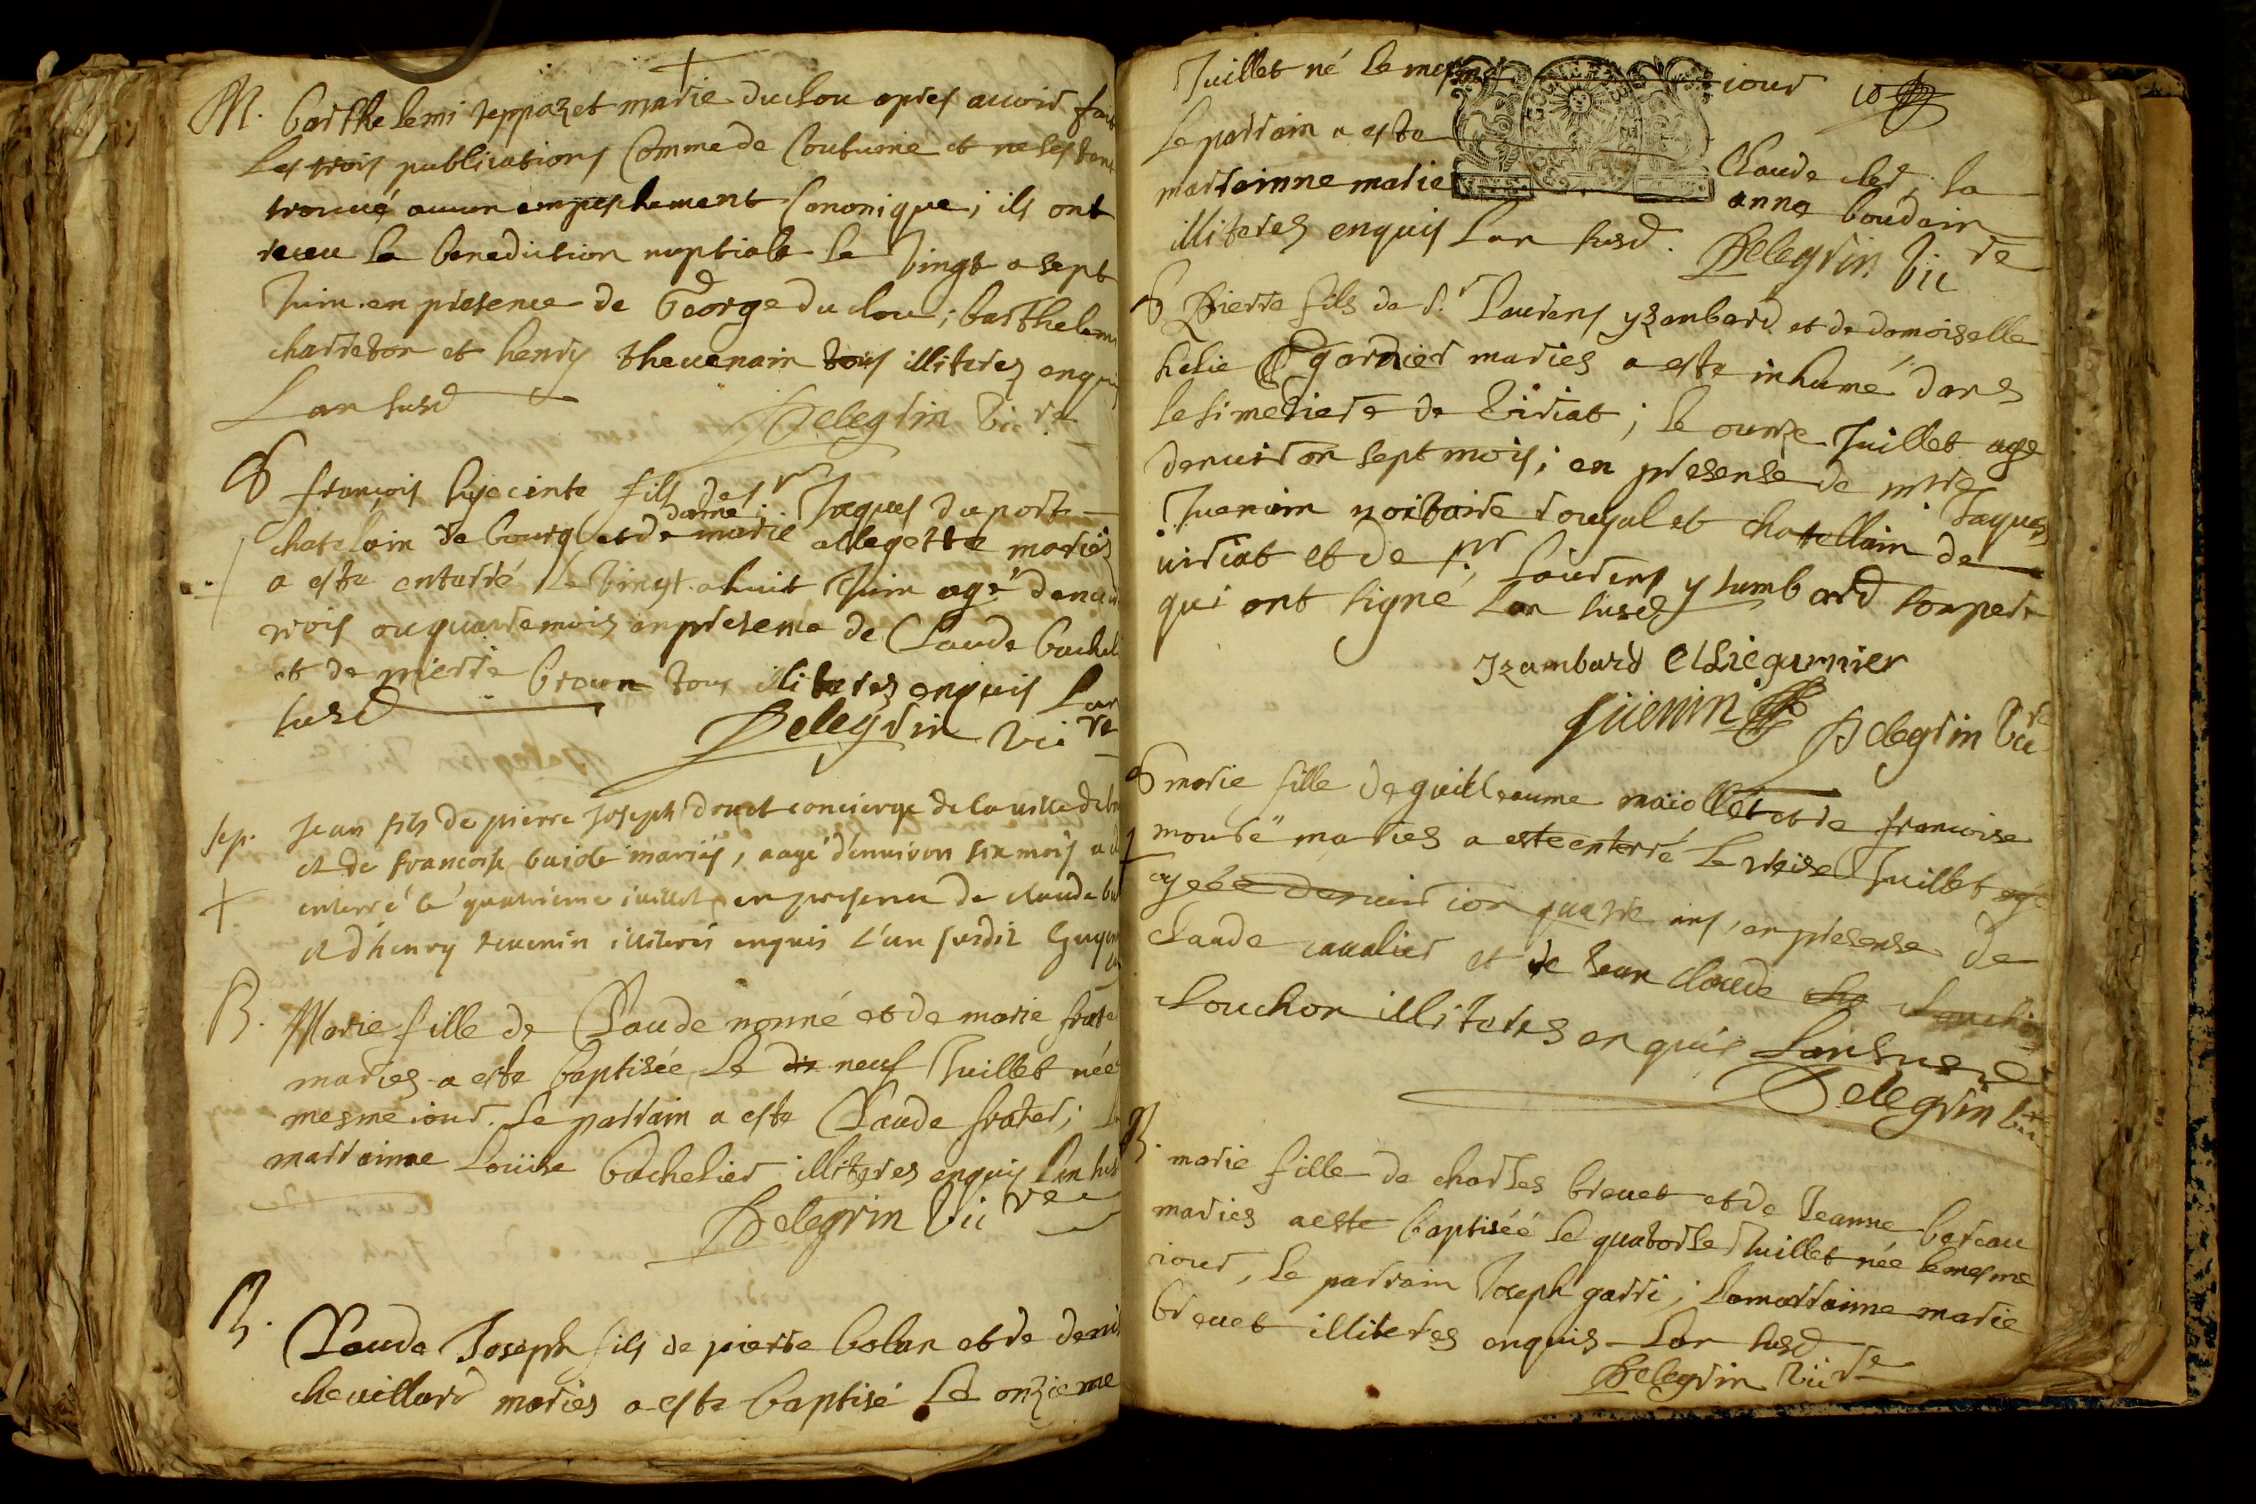 M. barthelemi teppaz et marie duclou apres avoir fait
Les trois publications Comme de Coutume et ne sestant
trouvé aucun empeschement Canonique; ils ont
receu La benediction nuptiale Le Vingt a sept
Juin en presence de George du clou; barthelemi
charreton et henry thevenain tous illiteres enquis
Lan susd
Pelegrin Vic re
S françois hyacinte fils des r Jaques duport
chatelain de bourg et de dame marie allegette mariés
a este enterré Le Vingt a huit Juin agé denvi
trois ou quatre mois en presence de Claude bacheli
et de pierre broun tous illiteres enquis Lan
susd
Pelegrin Vic re
sep. Jean fils de pierre Joseph donct concierge de la ville de b
et de francoise guiote mariés, aagé d'environ six mois a e
enterré le quatrieme juillet en presence de claude b
et d'henry tevenin illiterés enquis l'an susdit Guyon
B. Marie fille de Claude nonné et de marie frate
maries a este baptisée Le neuf Juillet née
mesme iour. Le parrain a este Claude frater; La
marrainne Loüise bachelier illiteres enquis Lan sus
Pelegrin Vic re
B. Claude Joseph fils de pierre bolan et de deni
chevillard maries a este baptisé Le onzieme
Juillet né Le mesme iour 10
Le parrain a este Claude cler, la
marrainne marie anne boudain
illiteres enquis Lan susd. Pelegrin Vic re
S Pierre fils de S.r Laurens yzanbard et de damoiselle
helie garnier maries a este inhumé dans
le simetiere de Viriat; Le ounze Juillet age
denviron sept mois; en presense de mtre Jaques
Juenin noitaire rouyal et chatellain de
viriat et de s.r Laurens ysambard son pere
qui ont signé Lan susd
Yzambard Ellie garnier
Juenin Pelegrin Vic re
S marie fille de guilleaume maiollet et de francoise
mouté maries a este enterré Le treise Juillet
agee denvirion quatre ans, en presense de
Claude cavalier et de Jean claude
Louchon illiteres enquis Lan susd
Pelegrin Vic re
B. marie fille de charles brevet et de Jeanne bereau
maries a este baptiséé Le quatorse Juillet née Le mesme
iour, Le parrain Joseph garri; La marrainne marie
brevet illiteres enquis Lan susd
Pelegrin Vic re